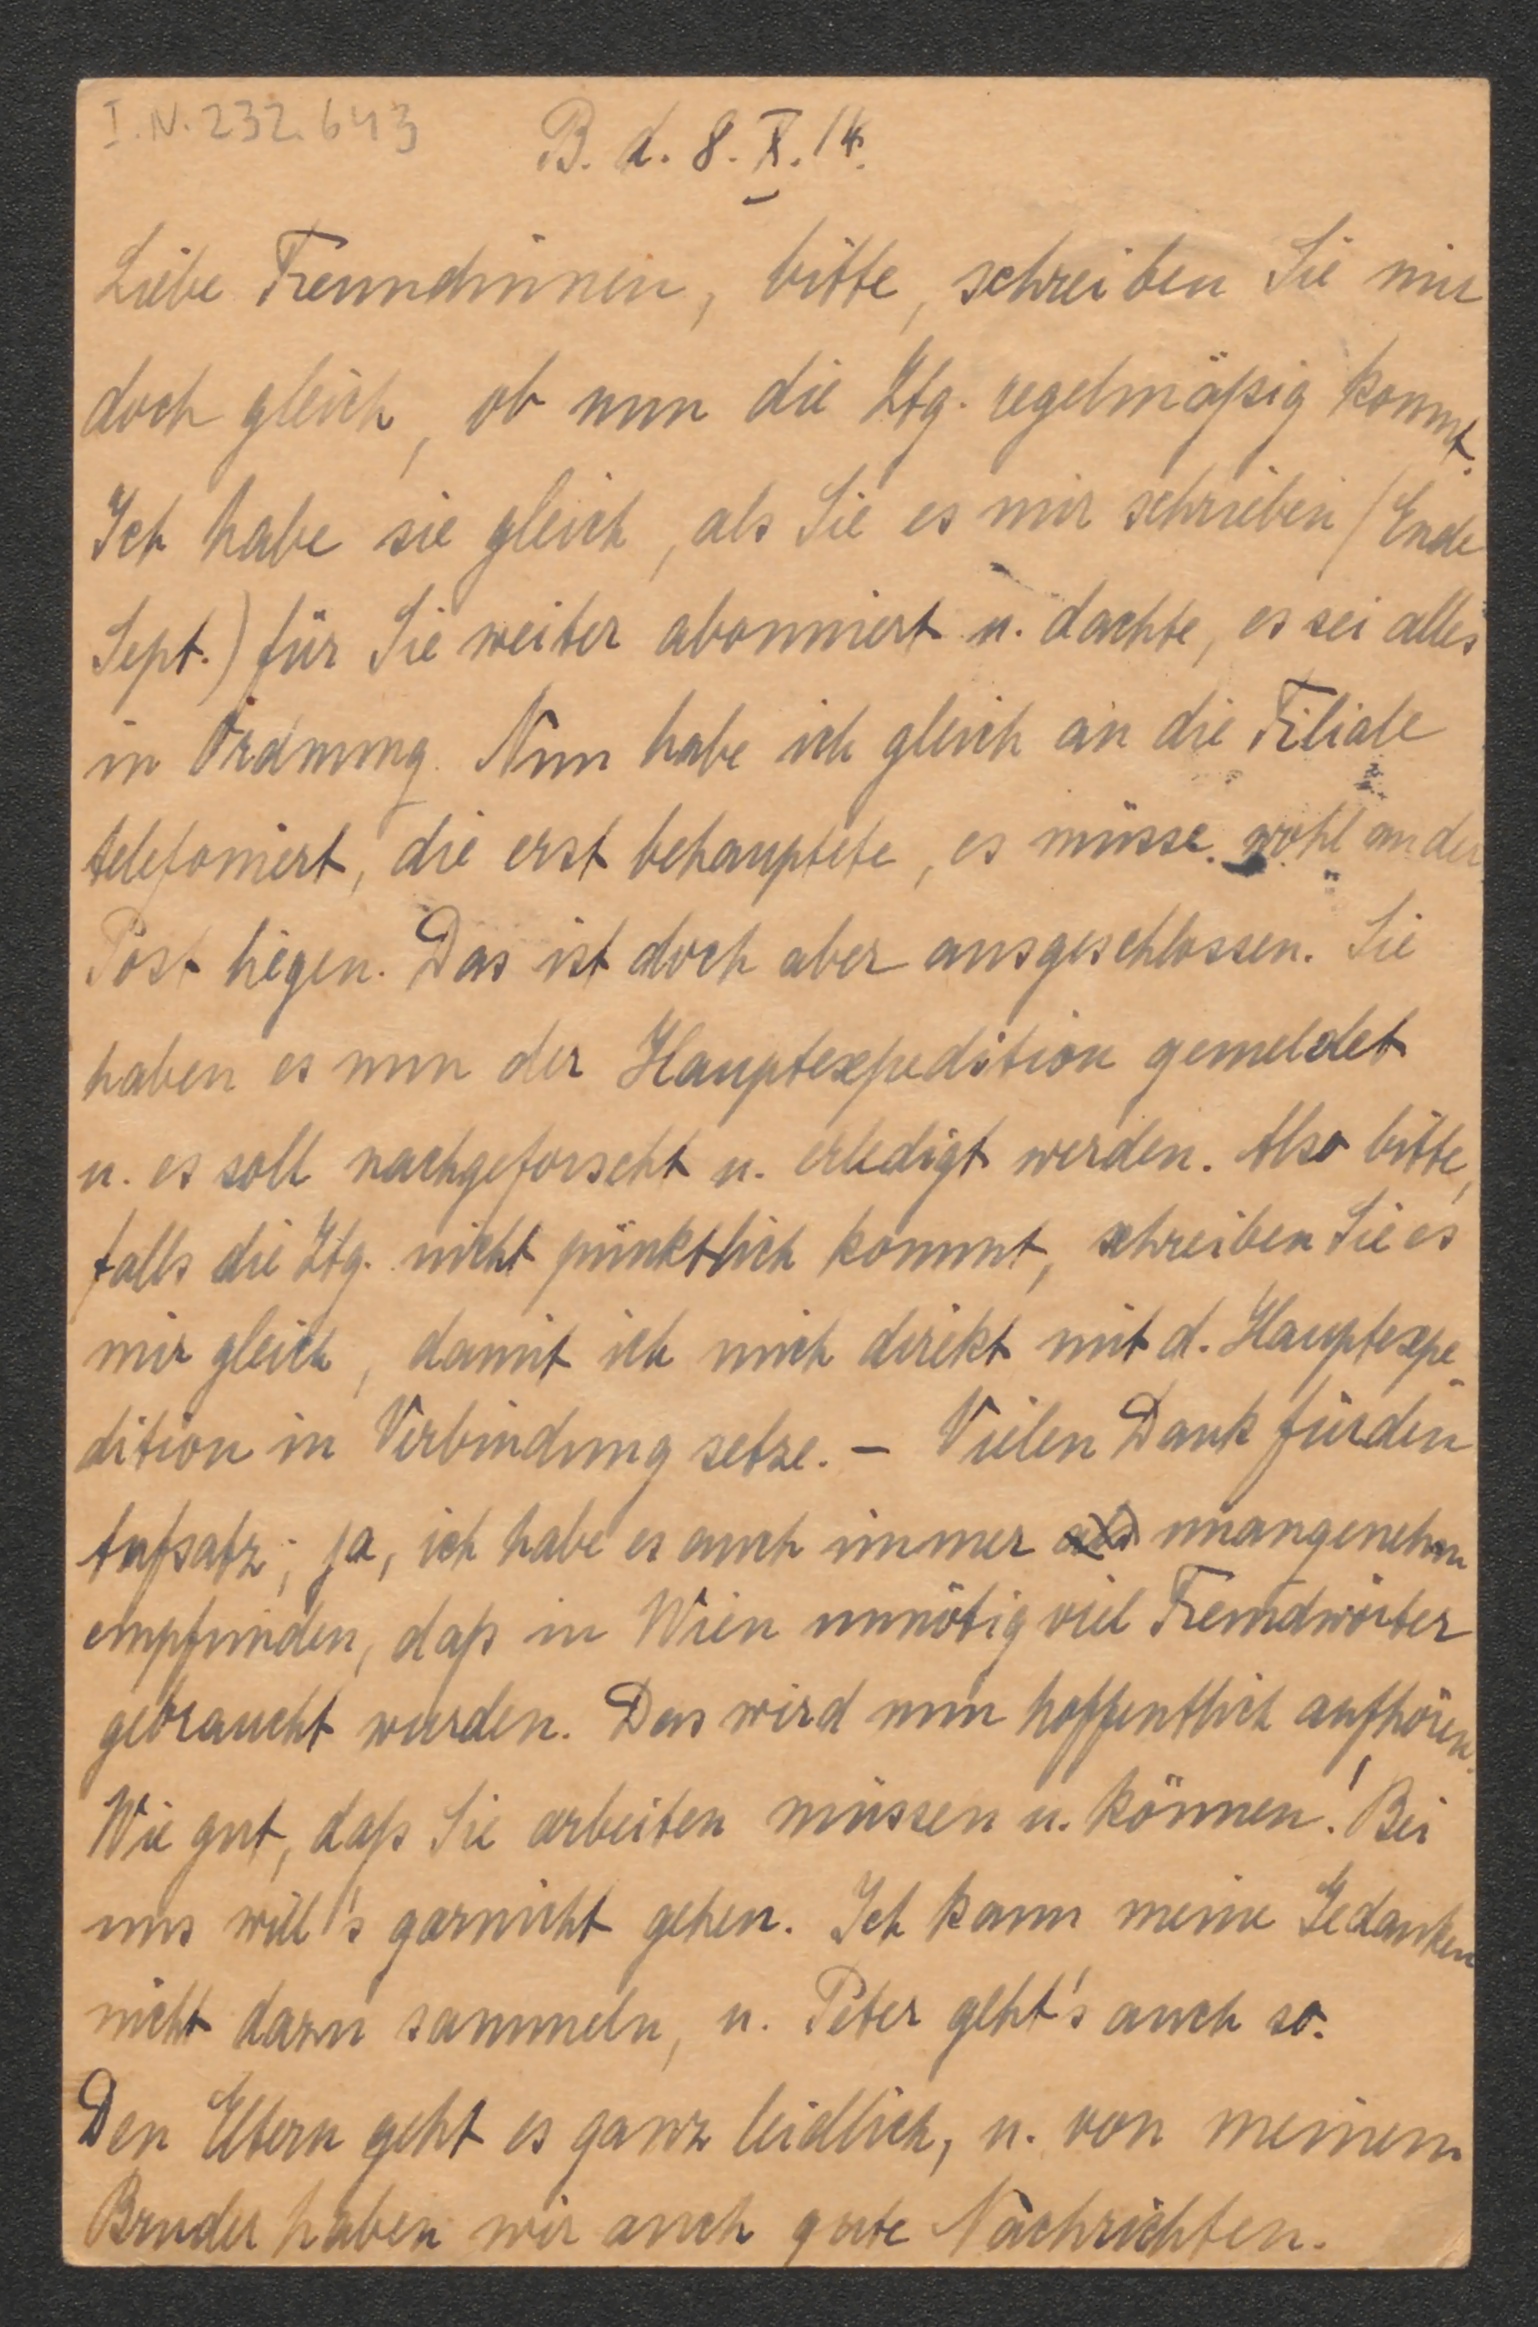 I.N. 232.643
B. d. 8. X. 14.
Liebe Freundinnen, bitte, schreiben Sie mir
doch gleich, ob nun die Ztg. regelmäßig kommt.
Ich habe sie gleich, als Sie es mir schrieben (Ende
Sept.) für Sie weiter abonniert u. dachte, es sei alles
in Ordnung. Nun habe ich gleich an die Filiale
telefoniert, die erst behauptete, es müsse wohl an der
Post liegen. Das ist doch aber ausgeschlossen. Sie
haben es nun der Hauptexpedition gemeldet
u. es soll nachgeforscht u. erledigt werden. Also bitte,
falls die Ztg. nicht pünktlich kommt, schreiben Sie es
mir gleich, damit ich mich direkt mit d. Hauptexpe-
dition in Verbindung setze. – Vielen Dank für den
Aufsatz; ja, ich habe es auch immer als unangenehm
empfunden, daß in Wien unnötig viel Fremdwörter
gebraucht wurden. Das wird nun hoffentlich aufhören.
Wie gut, daß Sie arbeiten müssen u. können! Bei
uns will's garnicht gehen. Ich kann meine Gedanken
nicht dazu sammeln, u. Peter geht's auch so.
Den Eltern geht es ganz leidlich, u. von meinem
Bruder haben wir auch gute Nachrichten.